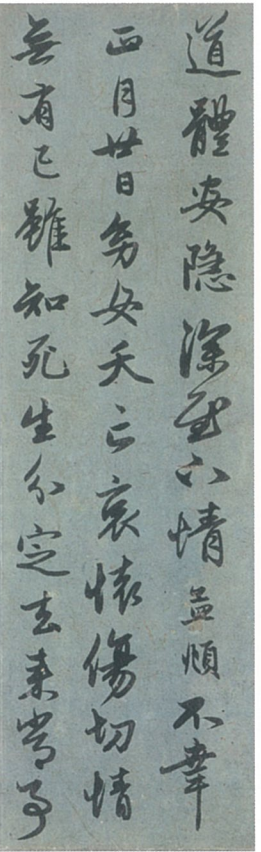 道體安隱深慰下情孟頫不幸
正月廿日幼女夭亡哀懷傷切情
無有已雖知死生分定去來常事